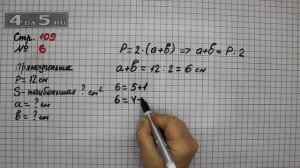 4DA5.RU
Стр. 109
№ 6
Прямоугольник
P=12 см
S-наибольшая ? см²
a = ? см
b = ? см
P = 2·(a+b) => a+b = P:2
a+b = 12:2 = 6 см
6 = 5+1
6 = 4